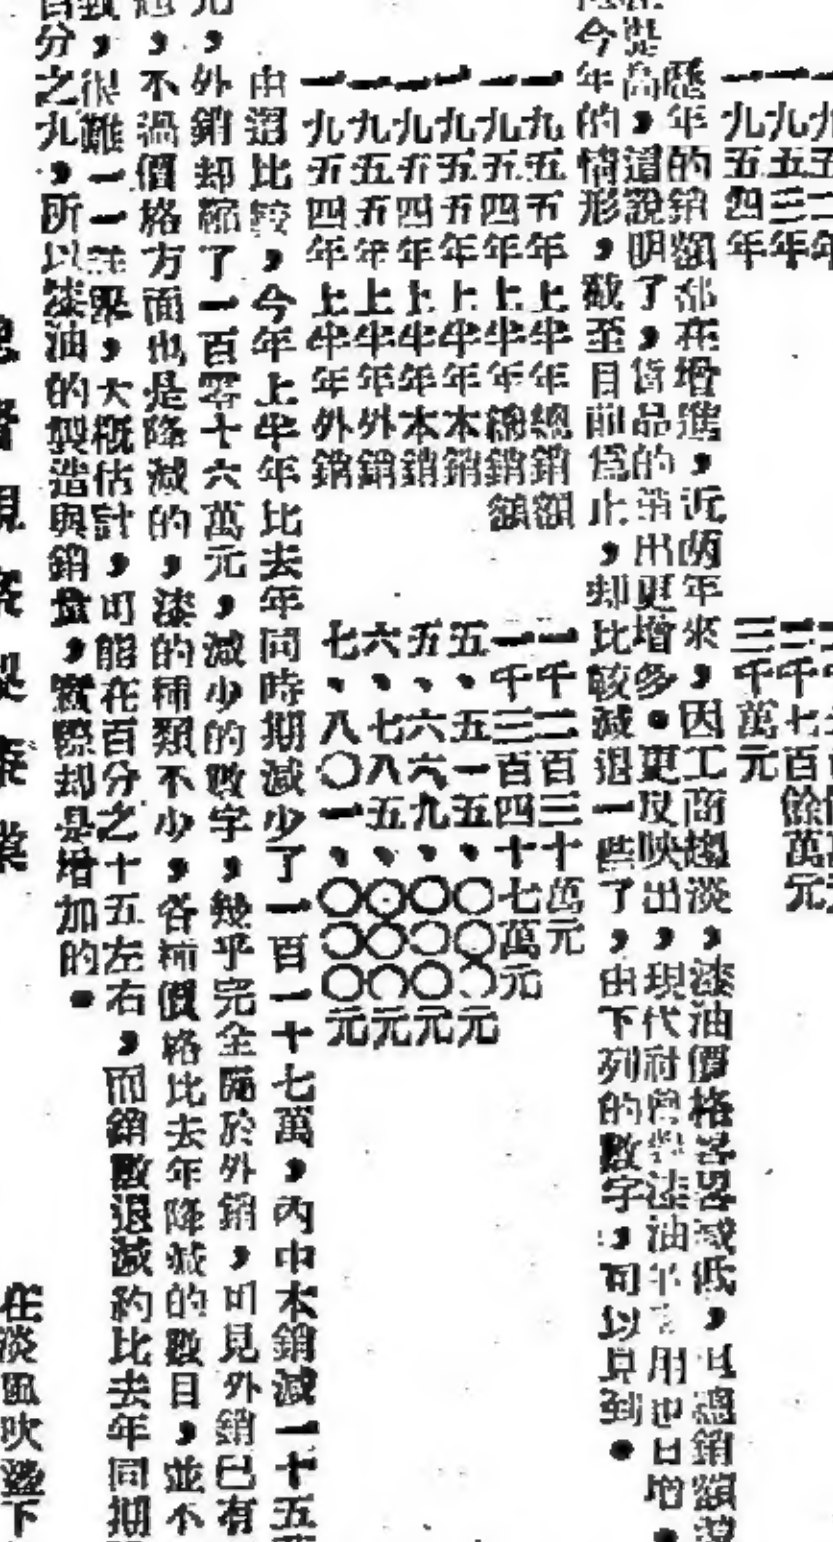 一九五二年
一九五三年 三千七百餘萬元
一九五四年 三千萬元
歷年的銷額都在增進，近兩年來，因工商趨淡，漆油價格畧畧減低，且總銷額
在提高，這說明了，貨品的銷出更增多。更反映出，現代社會對漆油的用也日增。
今年的情形，截至目前爲止，却比較減退一些了，由下列的數字，可以見到。
一九五五年上半年總銷額 一千二百三十萬元
一九五四年上半年總銷額 一千三百四十七萬元
一九五五年上半年本銷 五、五一五、〇〇〇元
一九五四年上半年本銷 五、六六九、〇〇〇元
一九五五年上半年外銷 六、七八五、〇〇〇元
一九五四年上半年外銷 七、八〇一、〇〇〇元
由這比較，今年上半年比去年同時期減少了一百一十七萬，內中本銷減一十五
元，外銷却縮了一百零十六萬元，減少的數字，幾乎完全屬於外銷，可見外銷已有
，不過價格方面也是降減的，漆的種類不少，各種價格比去年降減的數目，並不
致，很難一一詳累，大概估計，可能在百分之十五左右，而銷數退減約比去年同期
百分之九，所以漆油的製造與銷量，實際却是增加的。
者視察製漆業
在淡風吹盪下